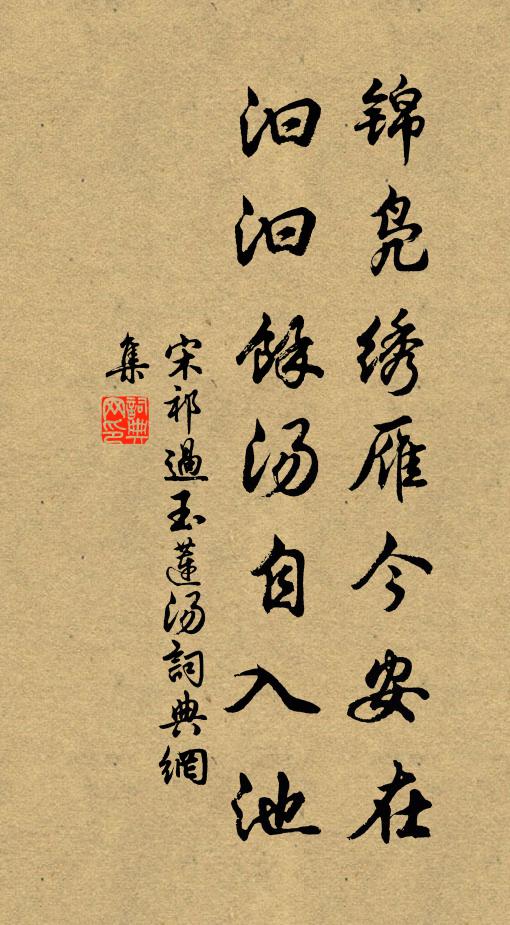 锦凫绣雁今安在
汩汩馀汤自入池
宋祁過玉蓮汤詞典網
集
詞典网印